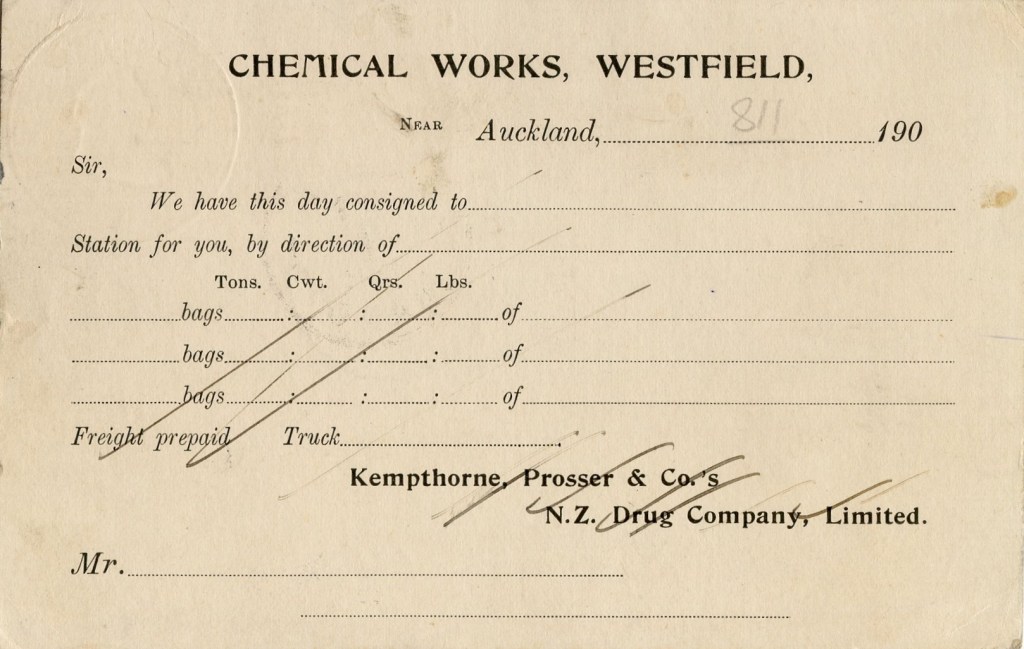 CHEMICAL WORKS, WESTFIELD,
NEAR Auckland, 811 190
Sir,
We have this day consigned to
Station for you, by direction of
Tons. Cwt. Qrs. Lbs.
bags : : : of
bags : : : of
bags : : : of
Freight prepaid Truck
Kempthorne, Prosser & Co.'s
N.Z. Drug Company, Limited.
Mr.